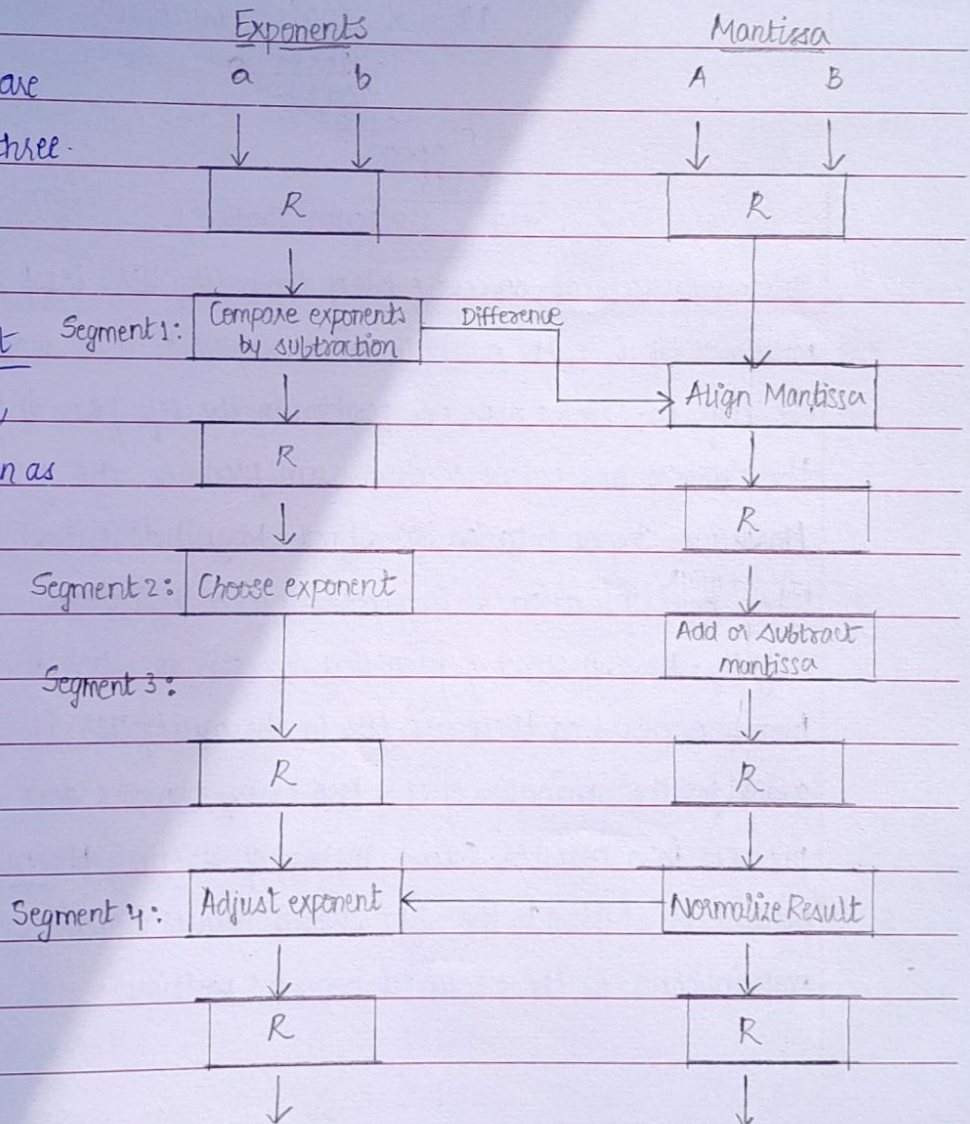 Exponents Mantissa
are a b A B
three.
R R
Segment 1: Compare exponents Difference
by subtraction
t
Align Mantissa
R
n as
R
Segment 2: Choose exponent
Add or subtract
mantissa
Segment 3:
R R
Segment 4: Adjust exponent Normalize Result
R R